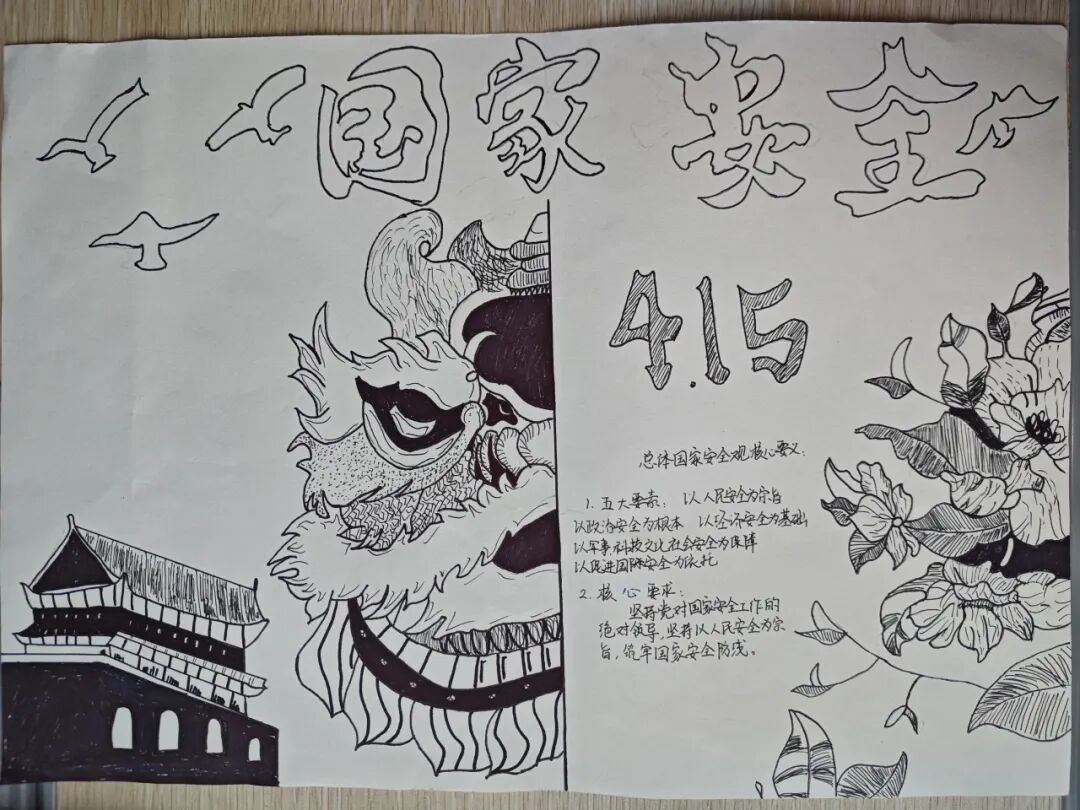 国家安全
4.15
总体国家安全观核心要义:
1. 五大要素: 以人民安全为宗旨
以政治安全为根本 以经济安全为基础
以军事科技文化社会安全为保障
以促进国际安全为依托
2. 核心要求:
坚持党对国家安全工作的
绝对领导,坚持以人民安全为宗
旨,筑牢国家安全防线。